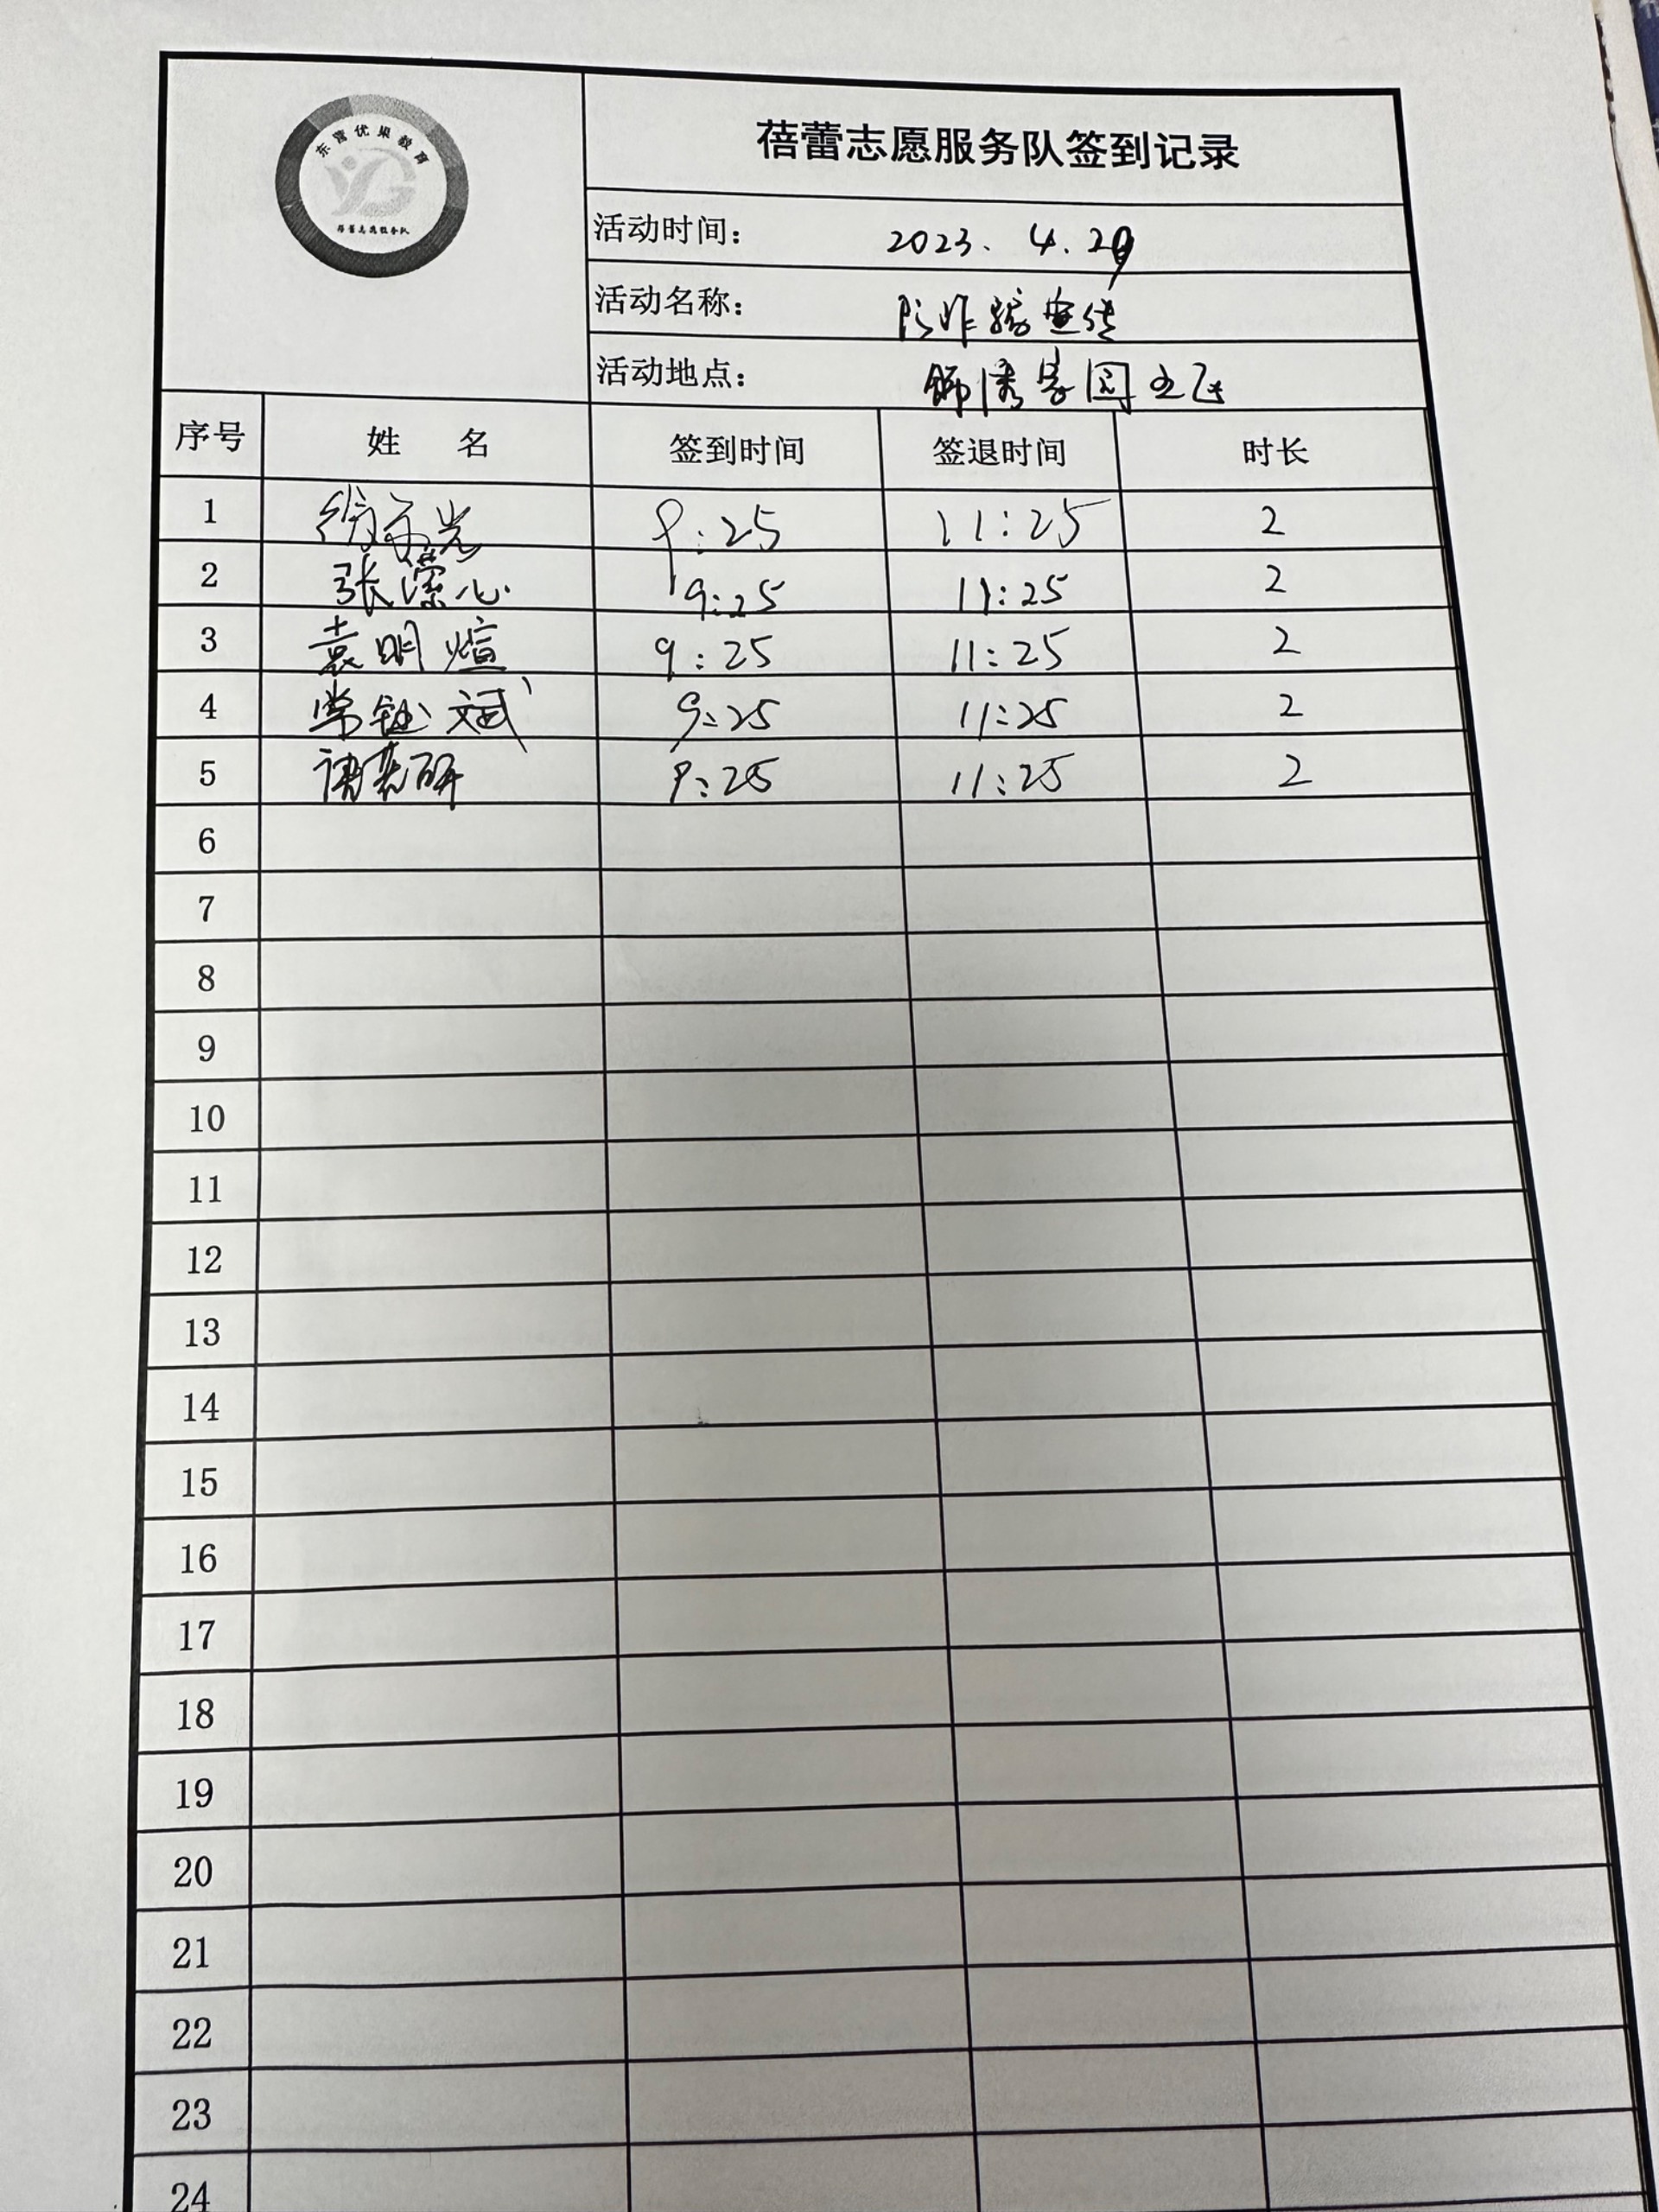 东营优果教育
蓓蕾志愿服务队
蓓蕾志愿服务队签到记录
活动时间： 2023. 4. 29
活动名称： 防诈骗宣传
活动地点： 锦绣家园五区
序号 姓 名 签到时间 签退时间 时长
1 9:25 11:25 2
2 张滢心 9:25 11:25 2
3 袁明煊 9:25 11:25 2
4 常钰斌 9:25 11:25 2
5 9:25 11:25 2
6
7
8
9
10
11
12
13
14
15
16
17
18
19
20
21
22
23
24